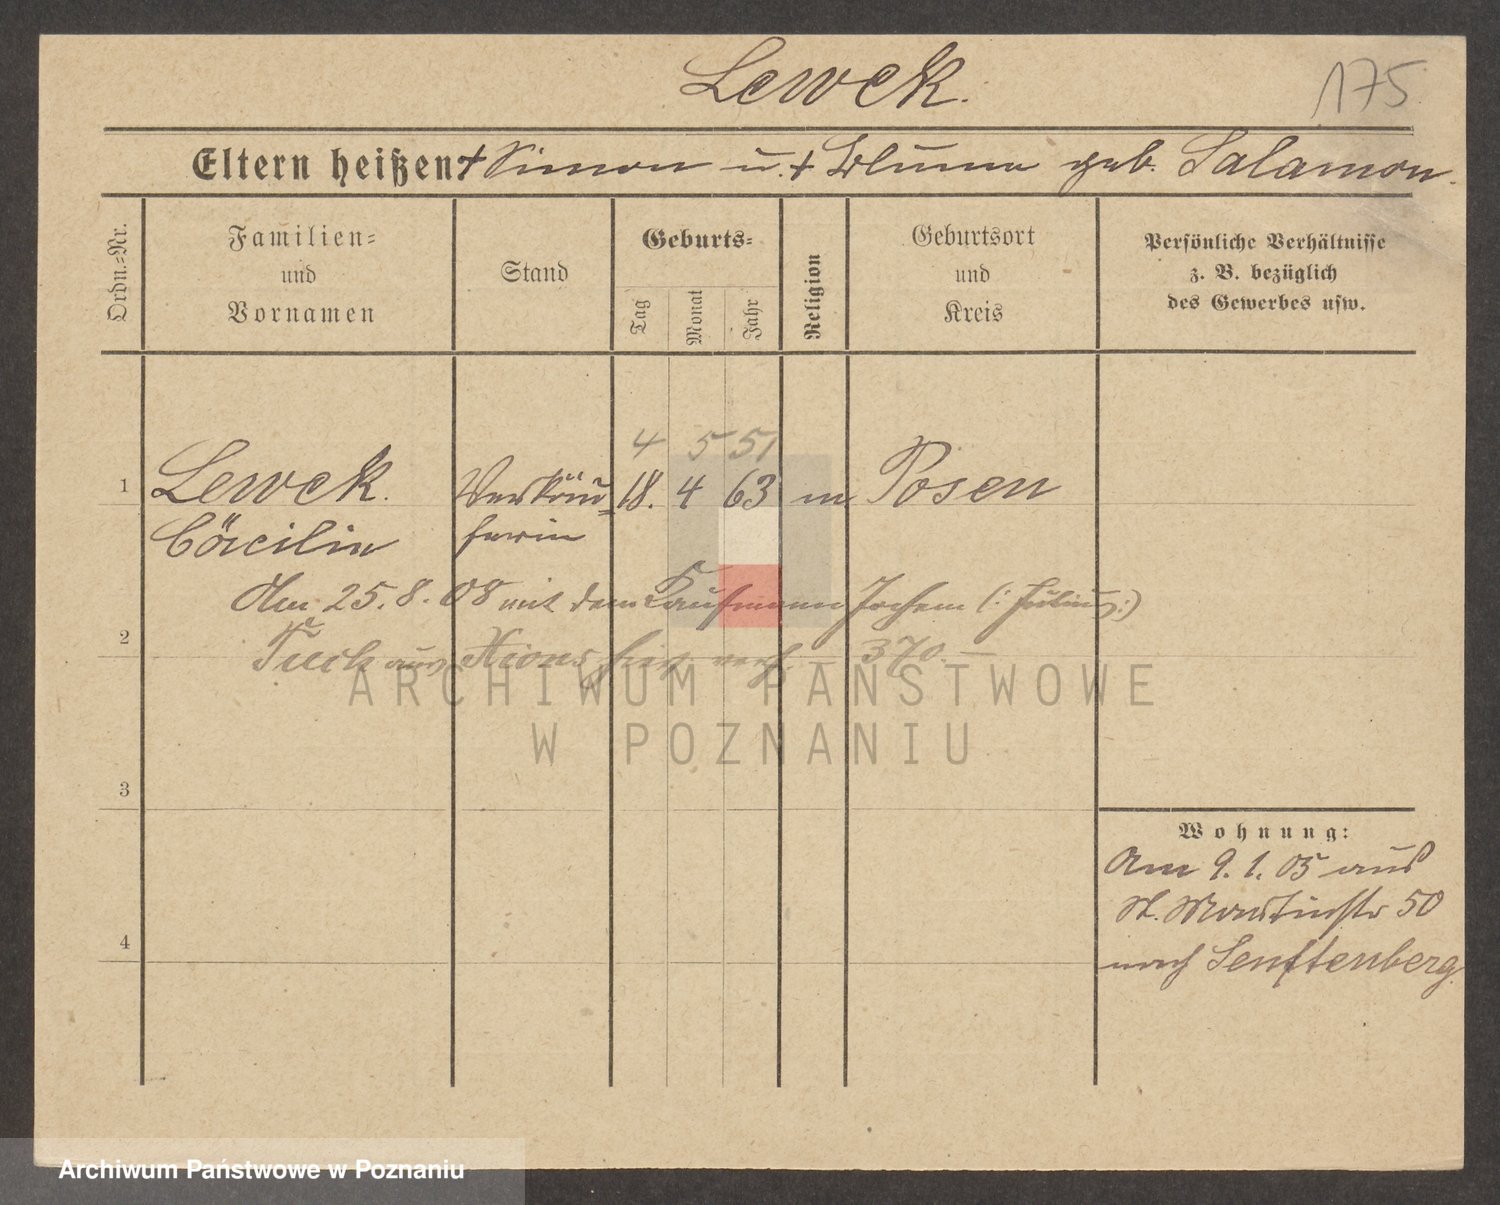 Lewek.
175
Eltern heißen + Simon u. + Bluma geb. Salamon.
Ordn.-Nr.
Familien-
und
Vornamen
Stand
Geburts-
Tag
Monat
Jahr
Religion
Geburtsort
und
Kreis
Persönliche Verhältnisse
z. B. bezüglich
des Gewerbes usw.
4 5 51
1 Lewek. Verkäu- 18. 4 63 m Posen
Cäcilie ferin
Am 25. 8. 08 mit dem Kaufmann Jochem (: Julius :)
2
Tuch aus Xions hier verh. – 370 –
ARCHIWUM PAŃSTWOWE
W POZNANIU
3
Wohnung:
Am 9. 1. 05 aus
St. Martinstr 50
4
nach Senftenberg.
Archiwum Państwowe w Poznaniu